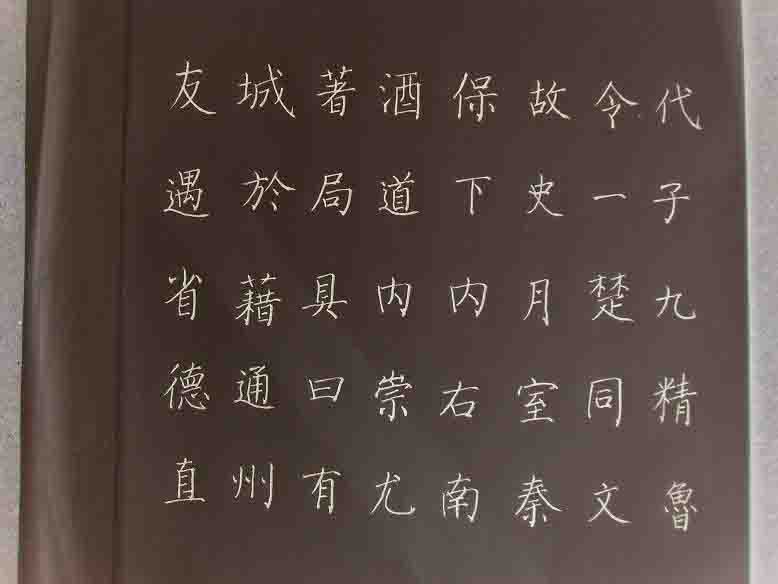 代子九精魯
令一楚同文
故史月室秦
保下内右南
酒道内崇尤
著局具曰有
城於藉通州
友遇省德直